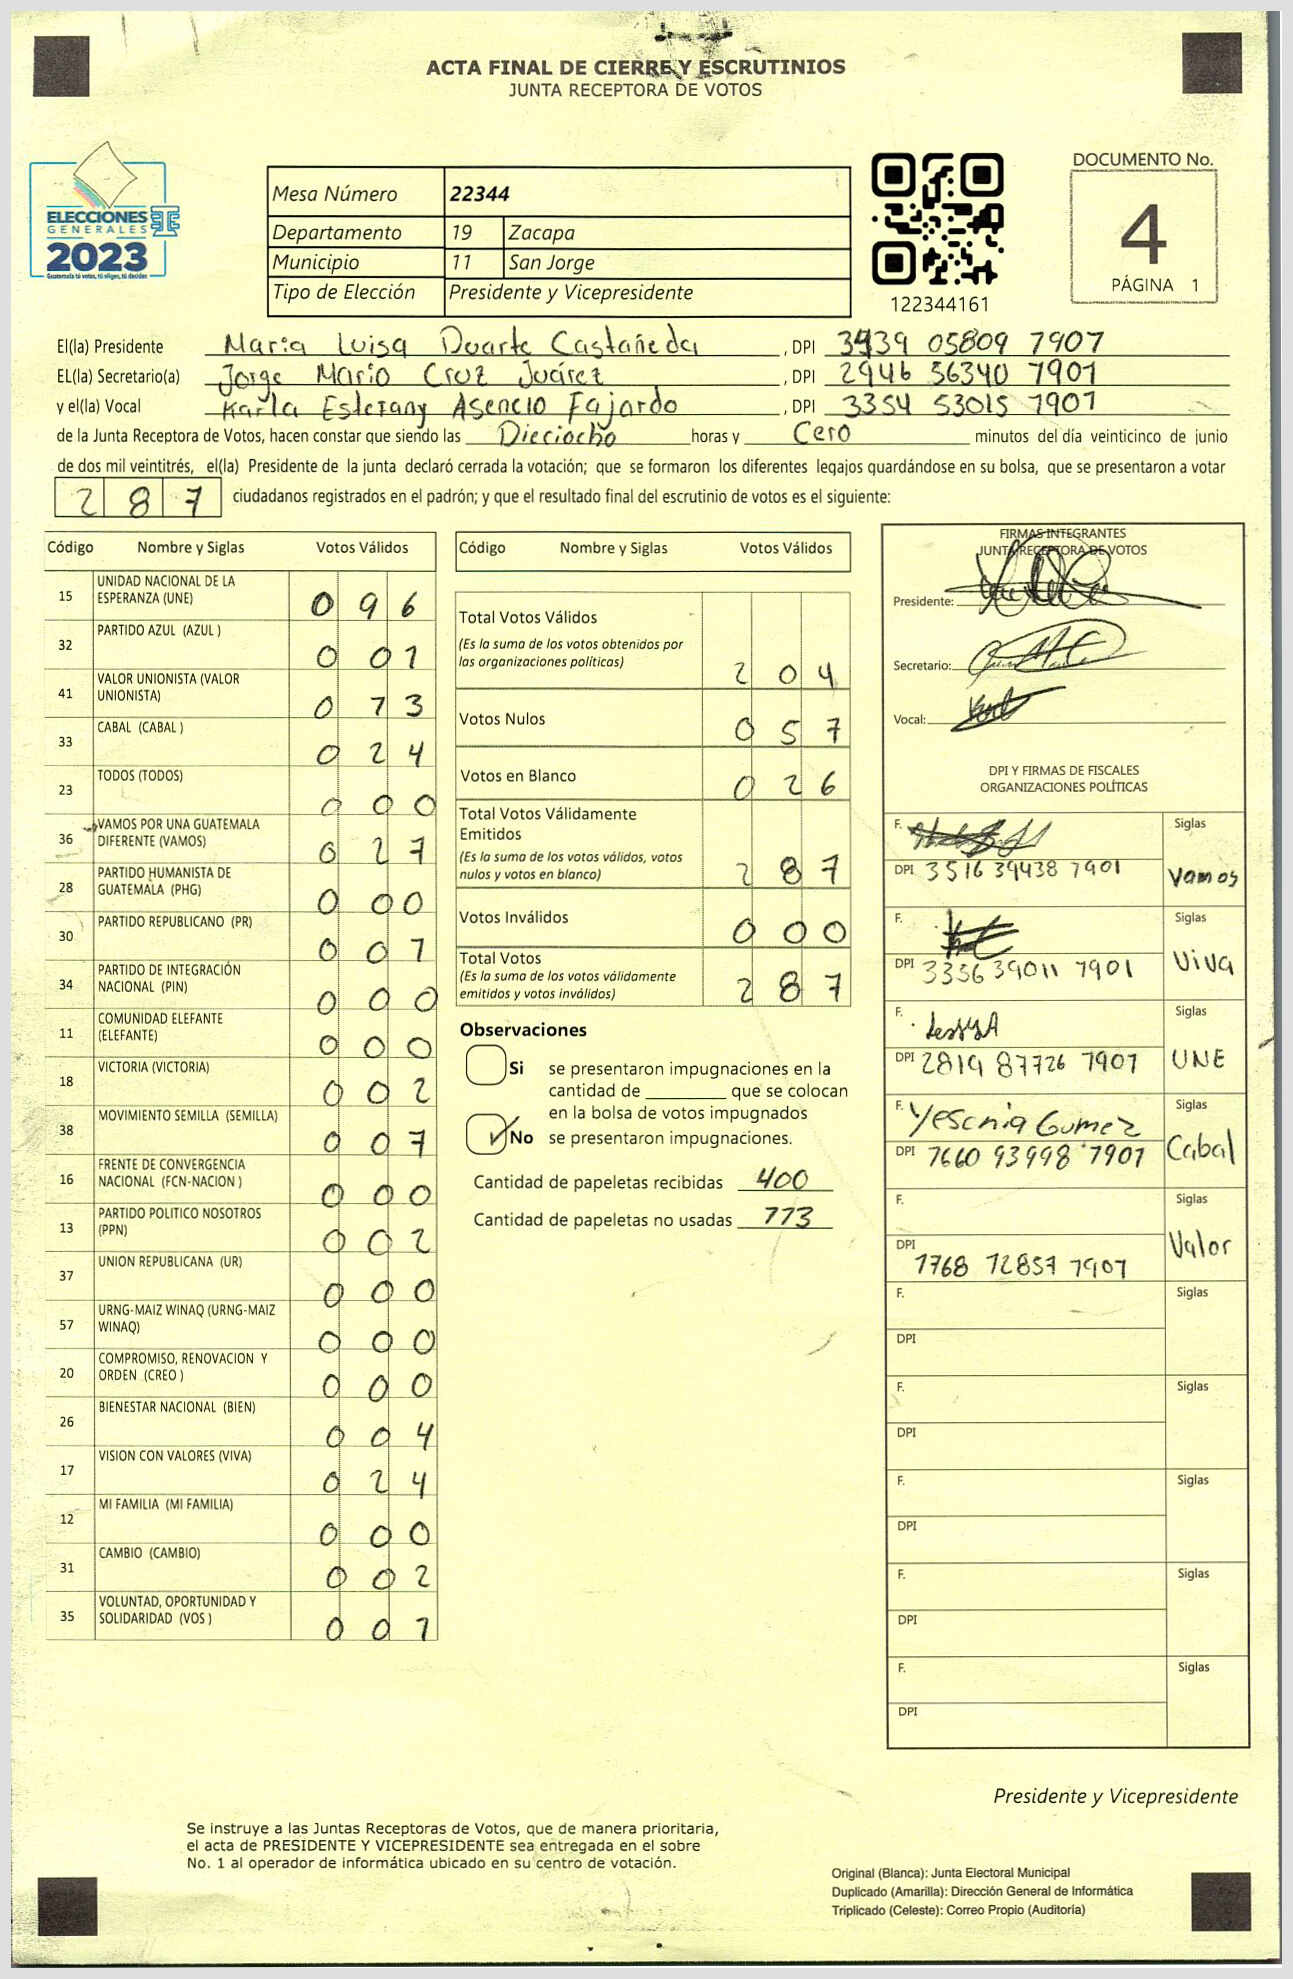 ACTA FINAL DE CIERRE Y ESCRUTINIOS
JUNTA RECEPTORA DE VOTOS
ELECCIONES
GENERALES
2023
Guatemala tú votas, tú eliges, tú decides
Mesa Número 22344
Departamento 19 Zacapa
Municipio 11 San Jorge
Tipo de Elección Presidente y Vicepresidente
122344161
DOCUMENTO No.
4
PÁGINA 1
El(la) Presidente Maria Luisa Duarte Castañeda , DPI 3439 05809 7907
EL(la) Secretario(a) Jorge Mario Cruz Juárez , DPI 2946 56340 1901
y el(la) Vocal Karla Estefany Asencio Fajardo , DPI 3354 53015 1901
de la Junta Receptora de Votos, hacen constar que siendo las Dieciocho horas y Cero minutos del día veinticinco de junio
de dos mil veintitrés, el(la) Presidente de la junta declaró cerrada la votación; que se formaron los diferentes legajos guardándose en su bolsa, que se presentaron a votar
287 ciudadanos registrados en el padrón; y que el resultado final del escrutinio de votos es el siguiente:
Código Nombre y Siglas Votos Válidos
15 UNIDAD NACIONAL DE LA ESPERANZA (UNE) 096
32 PARTIDO AZUL (AZUL ) 001
41 VALOR UNIONISTA (VALOR UNIONISTA) 013
33 CABAL (CABAL ) 024
23 TODOS (TODOS) 000
36 VAMOS POR UNA GUATEMALA DIFERENTE (VAMOS) 027
28 PARTIDO HUMANISTA DE GUATEMALA (PHG) 000
30 PARTIDO REPUBLICANO (PR) 001
34 PARTIDO DE INTEGRACIÓN NACIONAL (PIN) 000
11 COMUNIDAD ELEFANTE (ELEFANTE) 000
18 VICTORIA (VICTORIA) 002
38 MOVIMIENTO SEMILLA (SEMILLA) 007
16 FRENTE DE CONVERGENCIA NACIONAL (FCN-NACION ) 000
13 PARTIDO POLITICO NOSOTROS (PPN) 002
37 UNION REPUBLICANA (UR) 000
57 URNG-MAIZ WINAQ (URNG-MAIZ WINAQ) 000
20 COMPROMISO, RENOVACION Y ORDEN (CREO ) 000
26 BIENESTAR NACIONAL (BIEN) 004
17 VISION CON VALORES (VIVA) 024
12 MI FAMILIA (MI FAMILIA) 000
31 CAMBIO (CAMBIO) 002
35 VOLUNTAD, OPORTUNIDAD Y SOLIDARIDAD (VOS ) 001
Código Nombre y Siglas Votos Válidos
Total Votos Válidos
(Es la suma de los votos obtenidos por las organizaciones políticas) 204
Votos Nulos 057
Votos en Blanco 026
Total Votos Válidamente Emitidos
(Es la suma de los votos válidos, votos nulos y votos en blanco) 287
Votos Inválidos 000
Total Votos
(Es la suma de los votos válidamente emitidos y votos inválidos) 287
Observaciones
Si se presentaron impugnaciones en la
cantidad de ________ que se colocan
en la bolsa de votos impugnados
No se presentaron impugnaciones.
Cantidad de papeletas recibidas 400
Cantidad de papeletas no usadas 113
FIRMAS INTEGRANTES
JUNTA RECEPTORA DE VOTOS
Presidente:
Secretario:
Vocal:
DPI Y FIRMAS DE FISCALES
ORGANIZACIONES POLÍTICAS
F. Siglas
DPI 3516 39438 1901 Vamos
F. Siglas
DPI 3356 39011 1901 Viva
F. Siglas
DPI 2819 87726 1901 UNE
F. Yesenia Gomez Siglas
DPI 1660 93998 1901 Cabal
F. Siglas
DPI 1768 12857 1901 Valor
F. Siglas
DPI
F. Siglas
DPI
F. Siglas
DPI
F. Siglas
DPI
F. Siglas
DPI
Presidente y Vicepresidente
Se instruye a las Juntas Receptoras de Votos, que de manera prioritaria,
el acta de PRESIDENTE Y VICEPRESIDENTE sea entregada en el sobre
No. 1 al operador de informática ubicado en su centro de votación.
Original (Blanca): Junta Electoral Municipal
Duplicado (Amarilla): Dirección General de Informática
Triplicado (Celeste): Correo Propio (Auditoría)